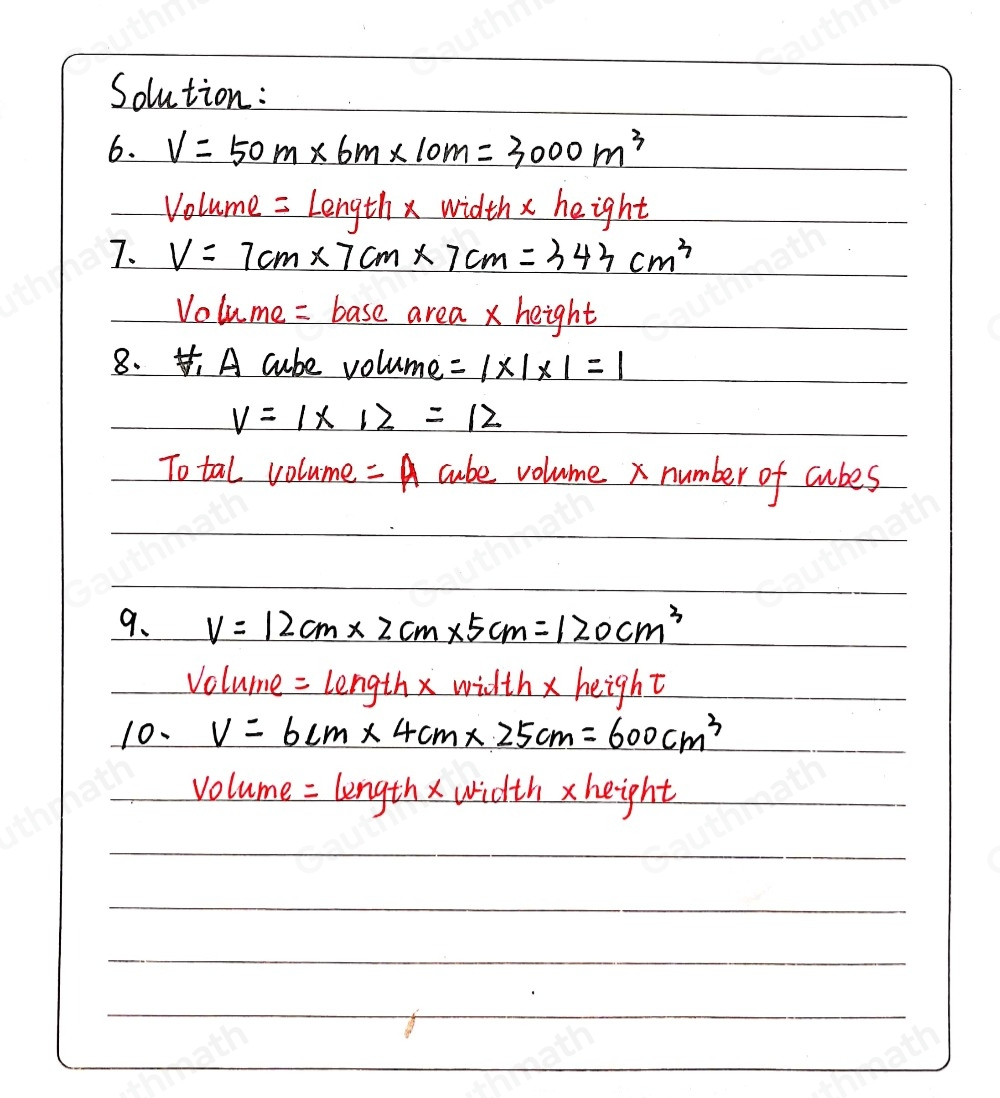 Solution:
6. V = 50m × 6m × 10m = 3000m³
Volume = Length × width × height
7. V = 7cm × 7cm × 7cm = 343 cm³
Volume = base area × height
8. A cube volume = 1×1×1 = 1
V = 1 × 12 = 12
Total volume = A cube volume × number of cubes
9、 V = 12cm × 2cm × 5cm = 120cm³
Volume = length × width × height
10、 V = 6cm × 4cm × 25cm = 600cm³
Volume = length × width × height
Gauthmath